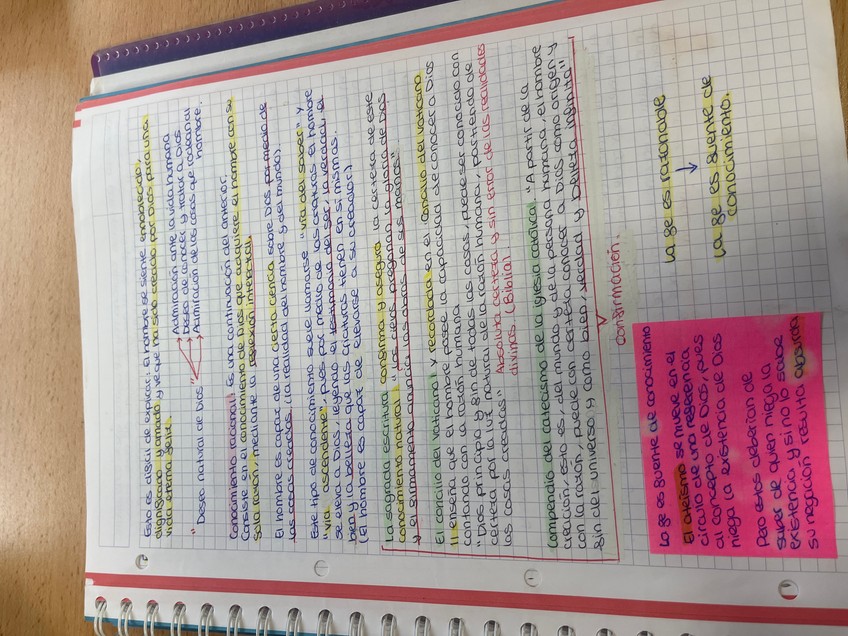 Esto es difícil de explicar: El hombre se siente ennoblecido,
dignificado y amado y ve que ha sido creado por Dios para una
vida eterna feliz.
"Deseo natural de Dios"
Admiración ante la vida humana
Deseo de conocer y tratar a Dios
Admiración de las cosas que rodean al
hombre.
Conocimiento racional: Es una continuación del anterior.
Consiste en el conocimiento de Dios que adquiere el hombre con su
sola razón, mediante la reflexión intelectual.
El hombre es capaz de una cierta ciencia sobre Dios por medio de
las cosas creadas. (La realidad del hombre y del mundo).
Este tipo de conocimiento suele llamarse "vía del saber" y
"vía ascendente", pues por medio de las criaturas el hombre
se eleva a Dios, leyendo el testimonio del ser, la verdad, el
bien y belleza que las criaturas tienen en sí mismas.
(El hombre es capaz de elevarse a su creador).
La sagrada escritura confirma y asegura la certeza de este
conocimiento natural: "Los cielos pregonan la gloria de Dios
y el firmamento anuncia las obras de sus manos"
El concilio del vaticano I y recordada en el Concilio del vaticano
II enseña que el hombre posee la capacidad de conocer a Dios
contando con la razón humana
"Dios, principio y fin de todas las cosas, puede ser conocido con
certeza por la luz natural de la razón humana, partiendo de
las cosas creadas" Absoluta certeza y sin error de las realidades
divinas. (Biblia)
Compendio del catecismo de la Iglesia católica: "A partir de la
creación, esto es, del mundo y de la persona humana, el hombre
con la razón, puede con certeza conocer a Dios como origen y
fin del universo y como bien, verdad y belleza infinita"
confirmación.
La fe es fuente de conocimiento
El ateísmo se mueve en el
círculo de una referencia
al concepto de Dios, pues
niega la existencia de Dios
Pero estos deberían de
saber de quien niega la
existencia y si no lo sabe
su negación resulta absurda
La fe es razonable
↓
La fe es fuente de
conocimiento.